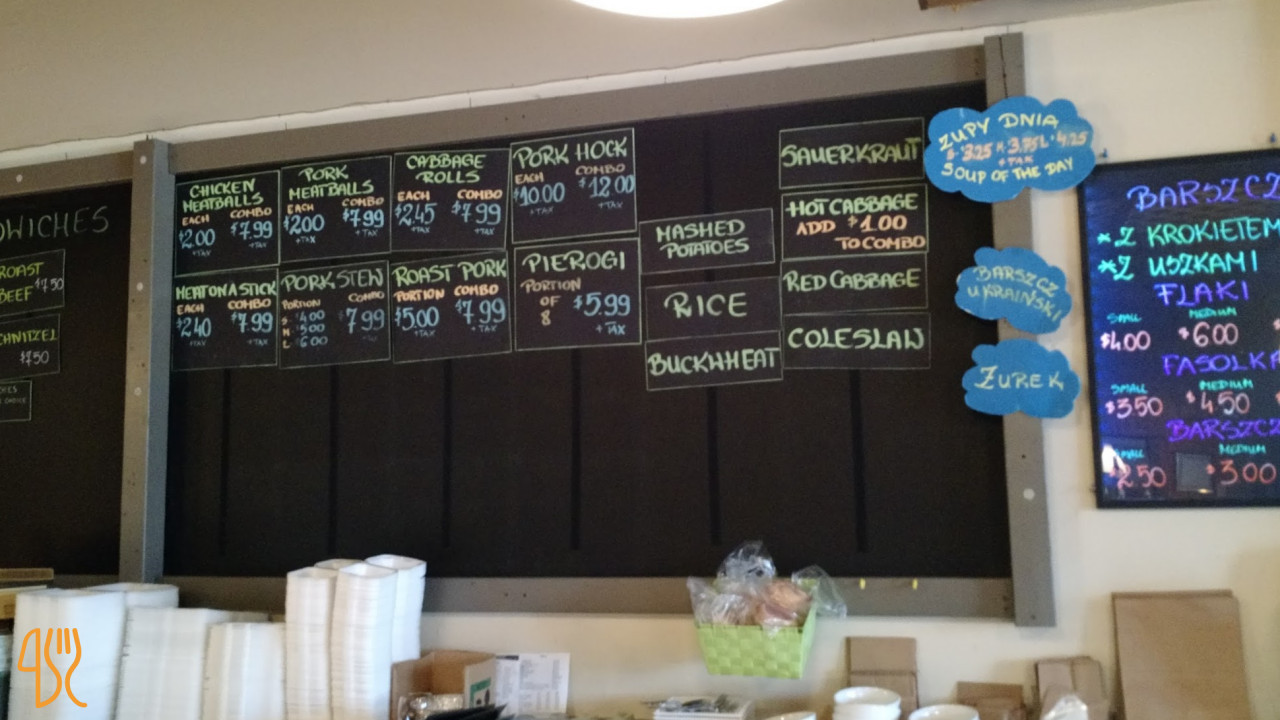 WICHES
ROAST
BEEF $7.50
CHNITZEL
$7.50
CHICKEN
MEATBALLS
EACH COMBO
$2.00 $7.99
+TAX
PORK
MEATBALLS
EACH COMBO
$2.00 $7.99
+TAX +TAX
CABBAGE
ROLLS
EACH COMBO
$2.45 $7.99
+TAX +TAX
PORK HOCK
EACH COMBO
$10.00 $12.00
+TAX +TAX
MEAT ON A STICK
EACH COMBO
$2.40 $7.99
+TAX +TAX
PORK STEW
PORTION COMBO
S $4.00
M $5.00 $7.99
L $6.00
ROAST PORK
PORTION COMBO
$5.00 $7.99
+TAX +TAX
PIEROGI
PORTION
OF $5.99
8 +TAX
MASHED
POTATOES
RICE
BUCKWHEAT
SAUERKRAUT
HOT CABBAGE
ADD $1.00
TO COMBO
RED CABBAGE
COLESLAW
ZUPY DNIA
S 3.25 M 3.75 L 4.25
+TAX
SOUP OF THE DAY
BARSZCZ
UKRAIŃSKI
ŻUREK
BARSZCZ
*Z KROKIETEM
*Z USZKAMI
FLAKI
SMALL MEDIUM
$4.00 $6.00
FASOLKA
SMALL MEDIUM
$3.50 $4.50
BARSZCZ
SMALL MEDIUM
$2.50 $3.00